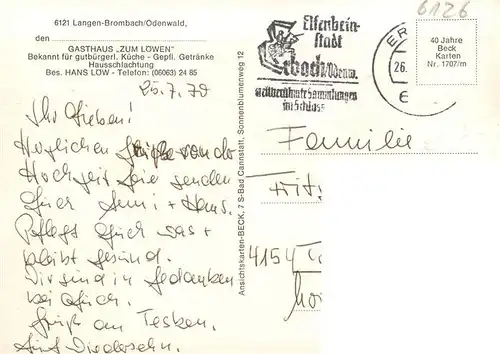 6121 Langen-Brombach/Odenwald,
den
GASTHAUS „ZUM LÖWEN"
Bekannt für gutbürgerl. Küche - Gepfl. Getränke
Hausschlachtung
Bes. HANS LÖW - Telefon: (06063) 24 85
25.7.70
Ihr Lieben!
Herzlichen Grüße von der
Hochzeit feie senden
Euer Anni + Hans.
Pflegt Euch was +
bleibt gesund.
Wir sind in Gedanken
bei Euch.
Gruß an Tesken.
Auf Wiedersehn.
Ansichtskarten-BECK, 7 S-Bad Cannstatt, Sonnenblumenweg 12
Elfenbein-
stadt
Erbach/Odenw.
weltberühmte Sammlungen
im Schloss
ER
26.
6
6126
40 Jahre
Beck
Karten
Nr. 1707/m
Familie
4154